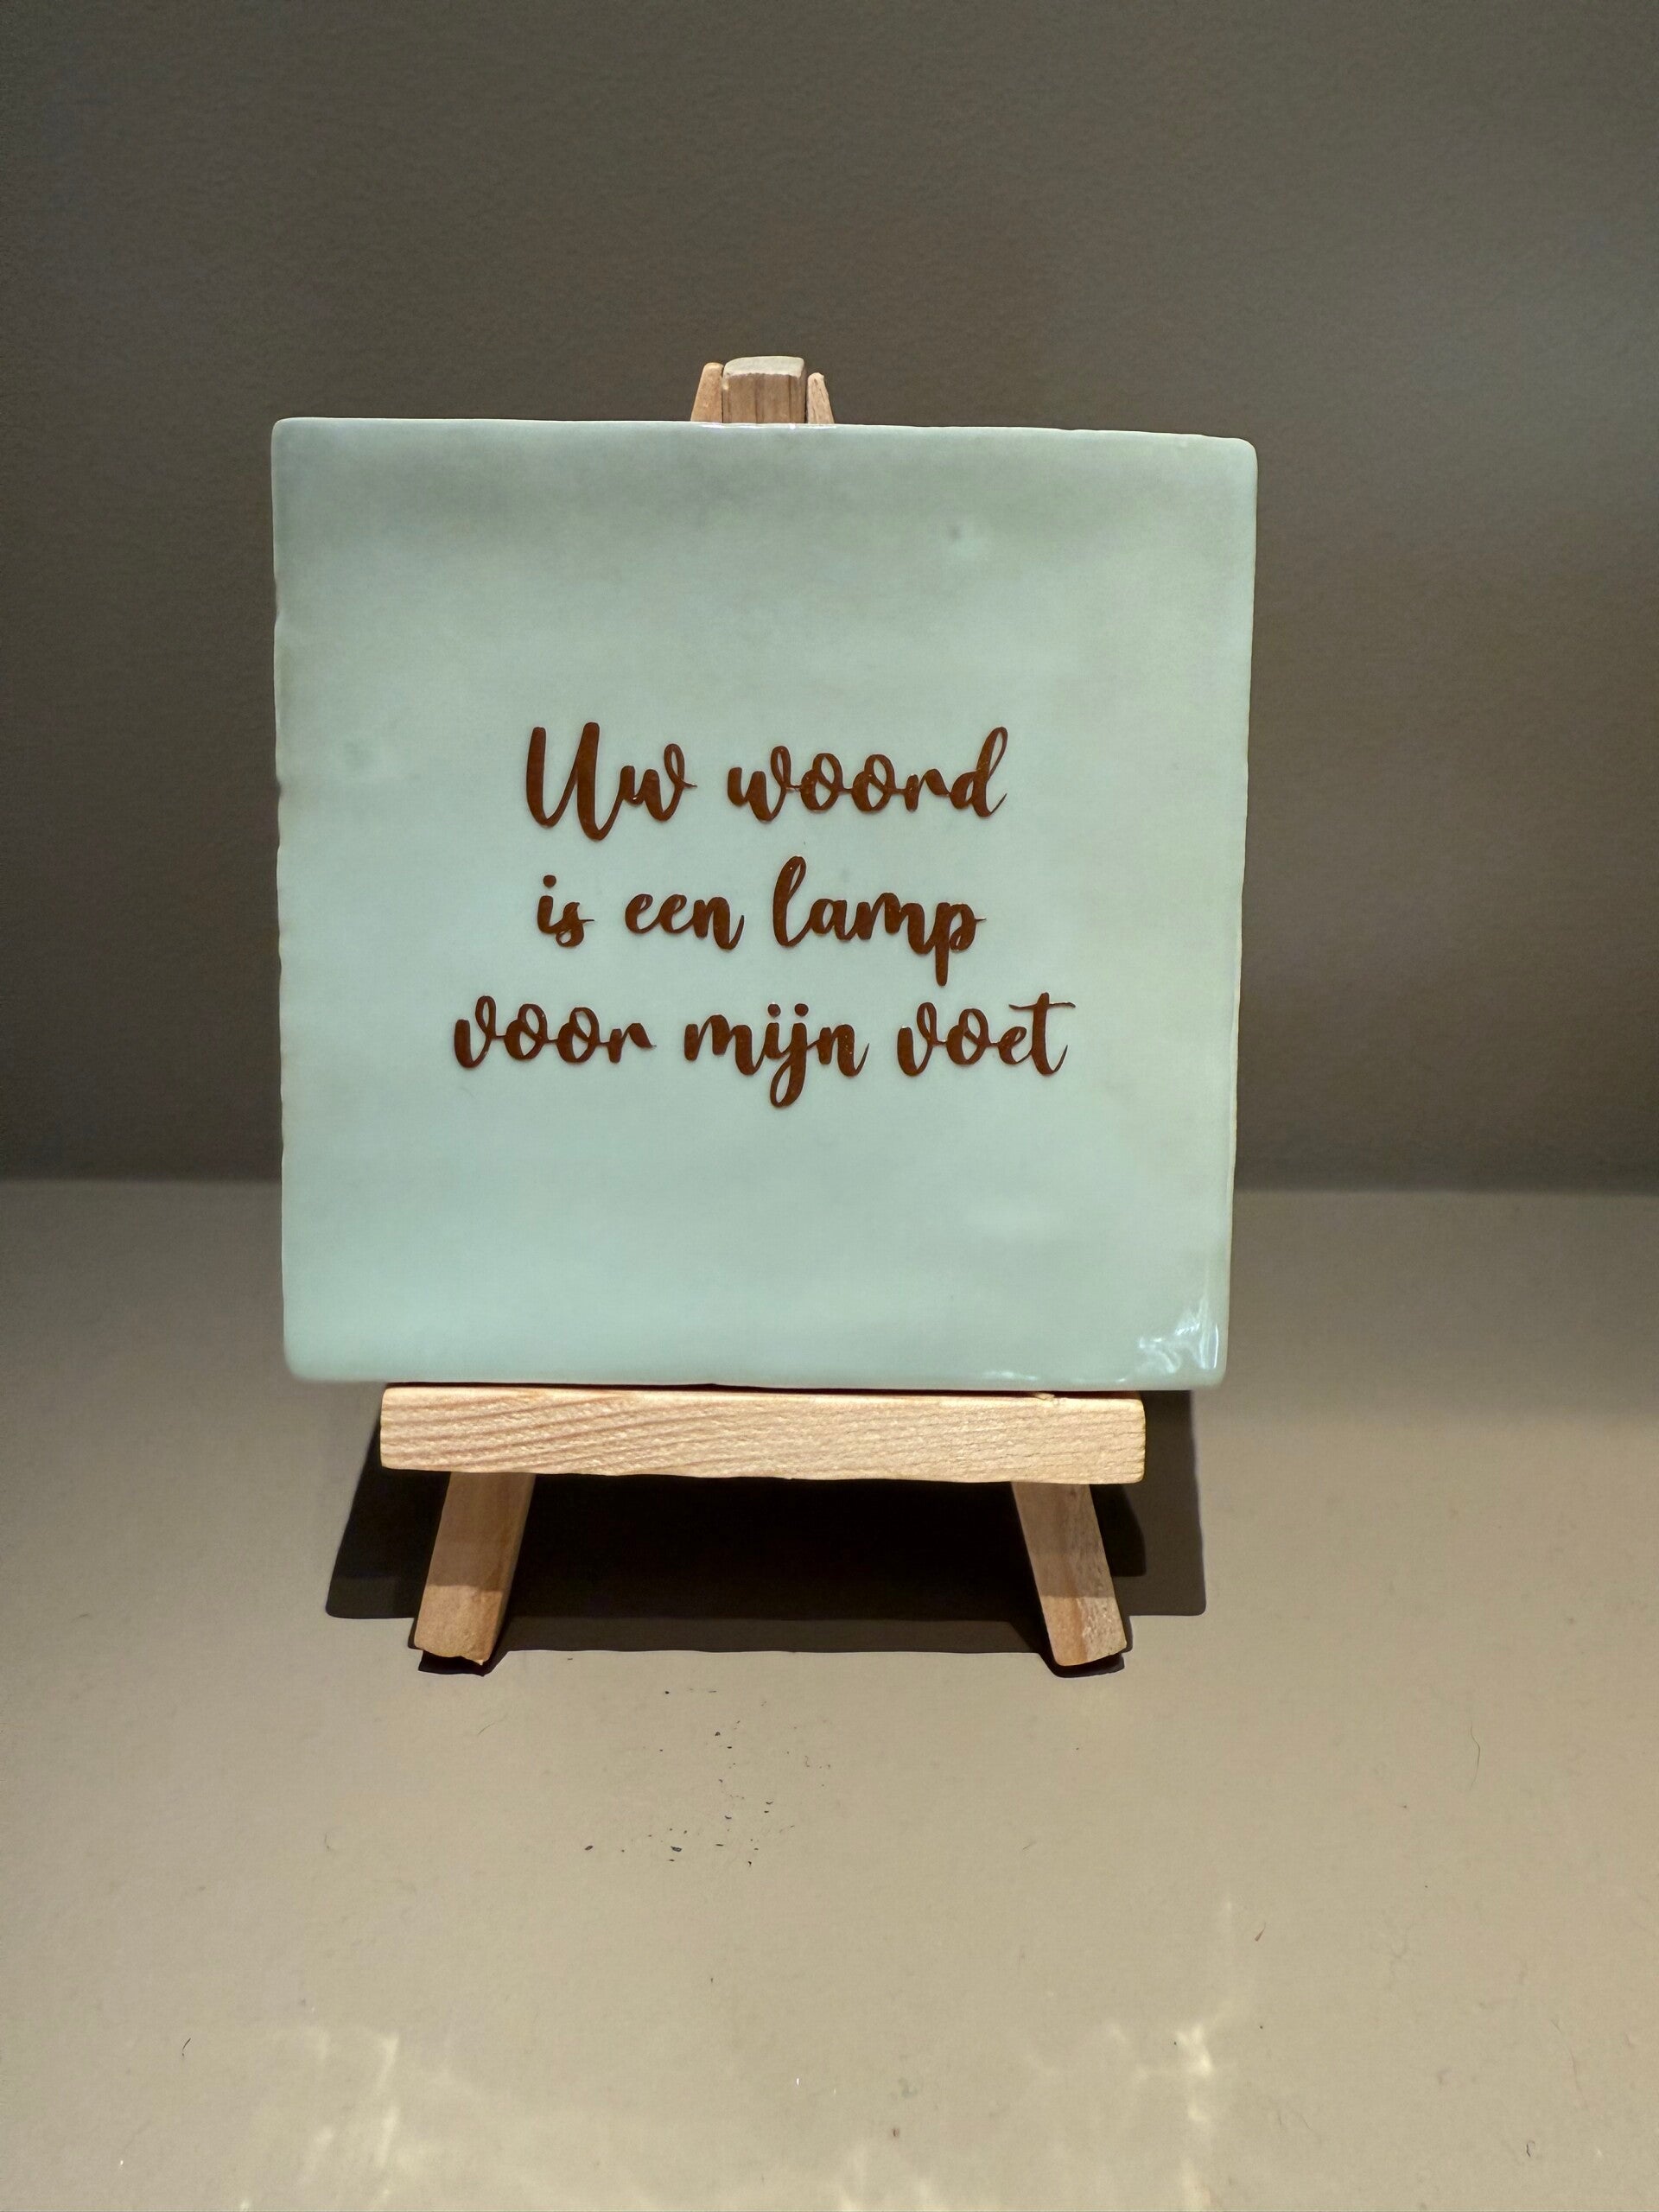 Uw woord
is een lamp
voor mijn voet